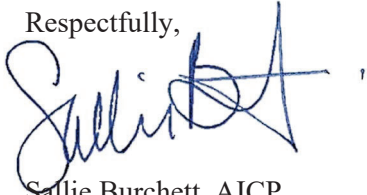 Respectfully,
Sallie B
Sallie Burchett, AICP